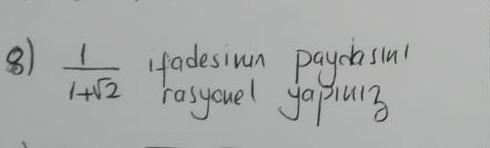 8) 1/(1+√2) ifadesinin paydasını
rasyonel yapınız